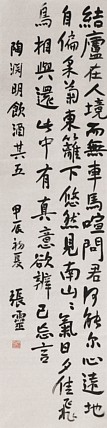 結廬在人境而無車馬喧問君何能尔心遠地
自偏采菊東籬下悠然見南山山氣日夕佳飛
鳥相與還此中有真意欲辨已忘言
陶淵明飲酒其五
甲辰初夏 張靈